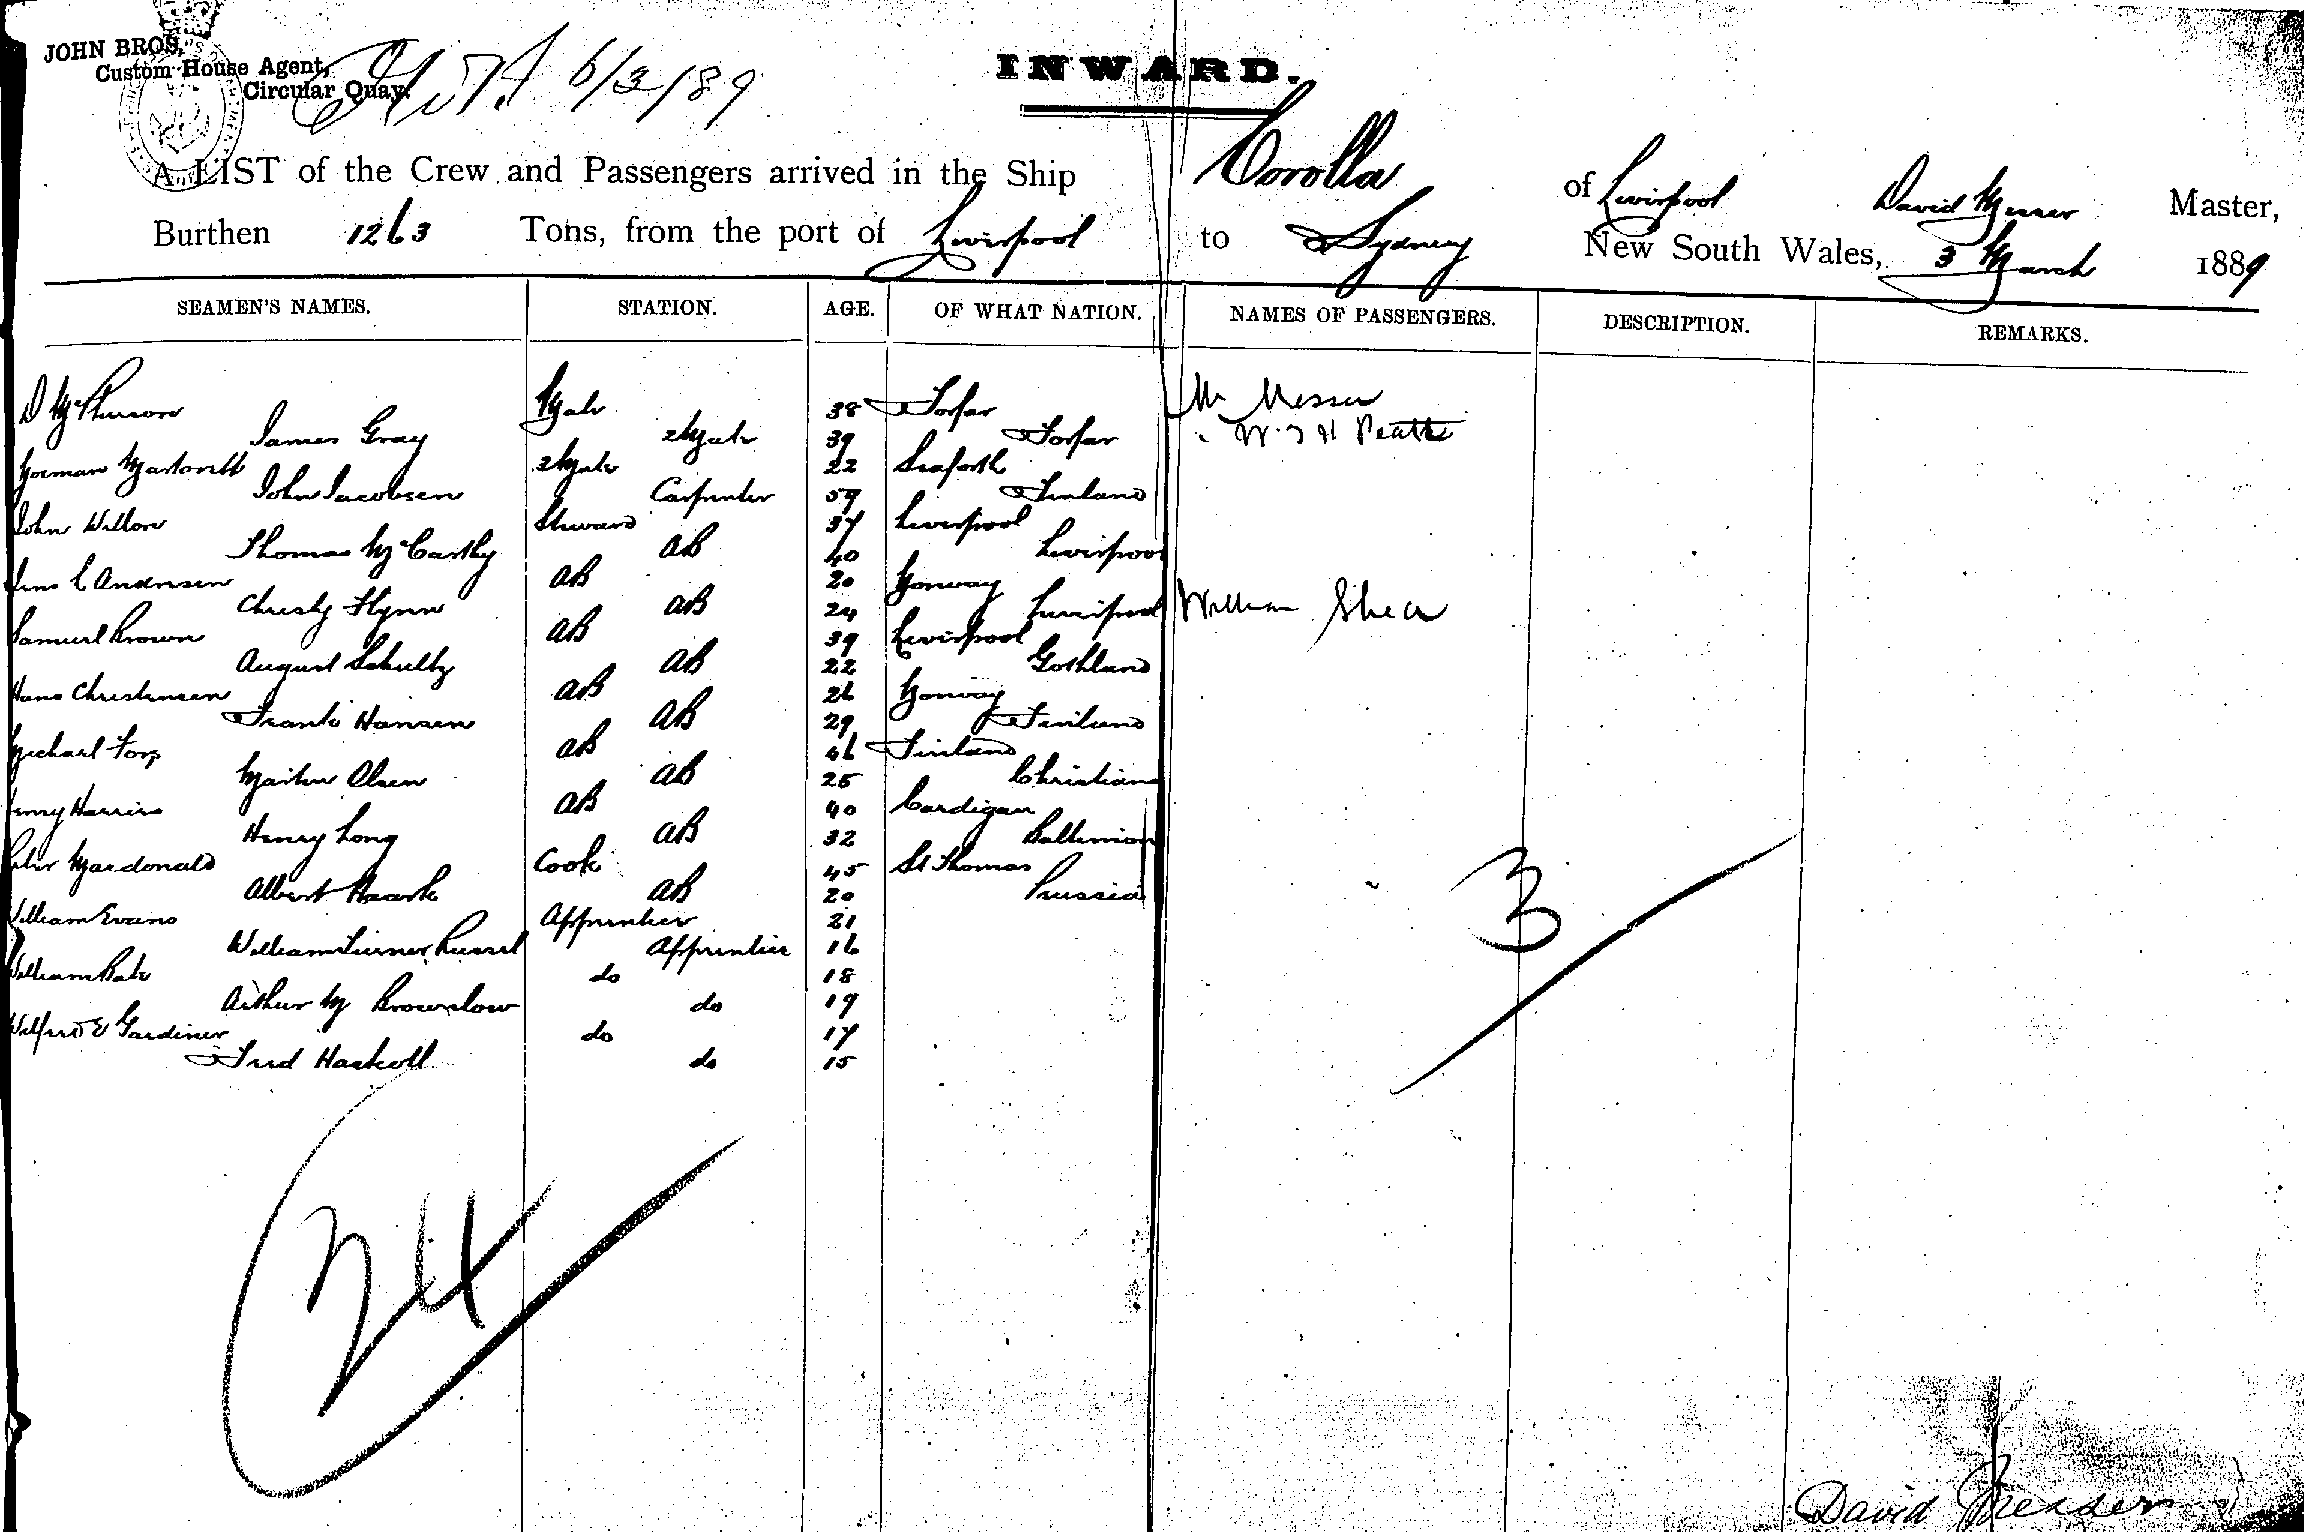 JOHN BROS.
Custom House Agent,
Circular Quay.
6/3/89
INWARD.
A LIST of the Crew and Passengers arrived in the Ship Corolla of Liverpool David Messer Master,
Burthen 1263 Tons, from the port of Liverpool to Sydney New South Wales, 3 March 1889
SEAMEN'S NAMES. STATION. AGE. OF WHAT NATION. NAMES OF PASSENGERS. DESCRIPTION. REMARKS.
D McPherson Mate 38 Forfar Mr Messer
James Gray 2 Mate 39 Forfar W. J H
Norman 2 Mate 22 Seaforth
John Jacobsen Carpenter 59 Finland
John Wilson Steward 37 Liverpool
Thomas McCarthy AB 40 Liverpool
C Andersen AB 20 Norway
Christy Flynn AB 24 Liverpool William Shea
Samuel Brown AB 39 Liverpool
August Schultz AB 22 Gothland
Hans Christensen AB 26 Norway
Frank Hansen AB 29 Finland
Michael Foy AB 46 Finland
Martin Olsen AB 25 Christiana
Henry Harris AB 40 Cardigan
Henry Long AB 32 Baltimore
Peter Macdonald Cook 45 St Thomas
Albert AB 20 Prussia
William Evans Apprentice 21
William Turner Russel Apprentice 16
William Bate do 18
Arthur M Brownlow do 19
Wilfred E Gardiner do 17
Fred Haskell do 15
3
24
David Messer